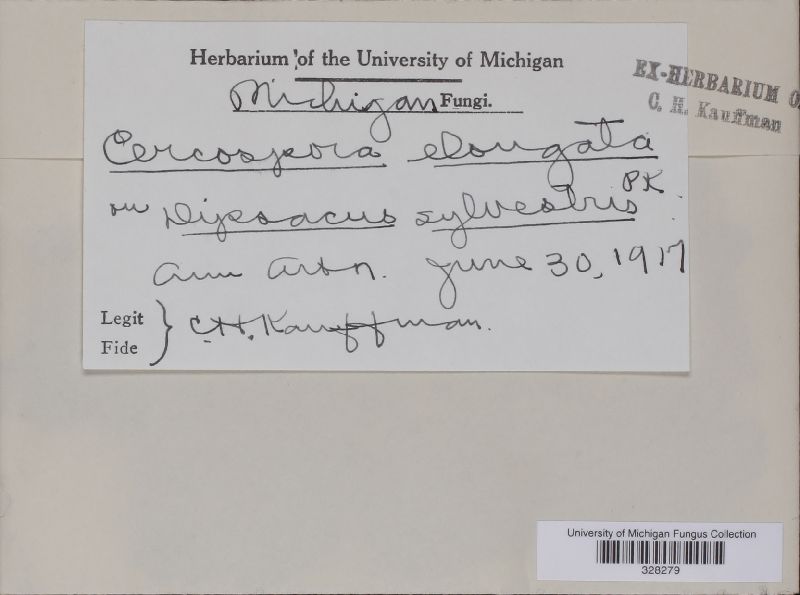 Herbarium of the University of Michigan
Michigan Fungi.
EX-HERBARIUM O
C. H. Kauffman
Cercospora elongata
PK
on Dipsacus sylvestris
Ann Arbor. June 30, 1917
Legit
Fide
C.H. Kauffman.
University of Michigan Fungus Collection
328279